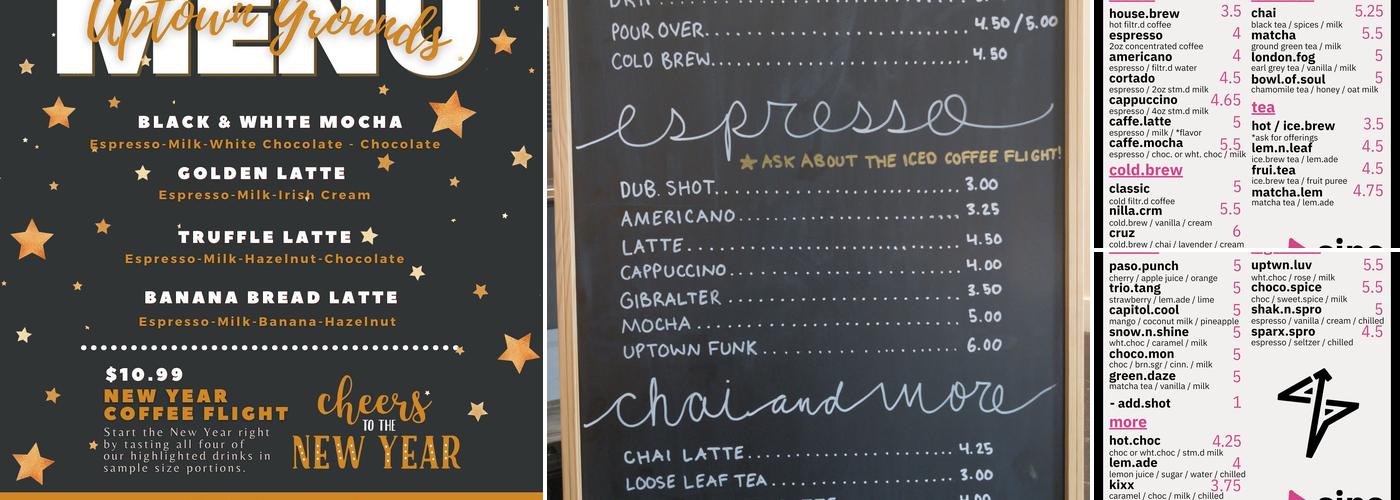 MENU
Uptown Grounds
BLACK & WHITE MOCHA
Espresso-Milk-White Chocolate - Chocolate
GOLDEN LATTE
Espresso-Milk-Irish Cream
TRUFFLE LATTE
Espresso-Milk-Hazelnut-Chocolate
BANANA BREAD LATTE
Espresso-Milk-Banana-Hazelnut
$10.99
NEW YEAR
COFFEE FLIGHT
Start the New Year right
by tasting all four of
our highlighted drinks in
sample size portions.
cheers
TO THE
NEW YEAR
POUR OVER 4.50/5.00
COLD BREW 4.50
espresso
ASK ABOUT THE ICED COFFEE FLIGHT!
DUB. SHOT 3.00
AMERICANO 3.25
LATTE 4.50
CAPPUCCINO 4.00
GIBRALTER 3.50
MOCHA 5.00
UPTOWN FUNK 6.00
chai and more
CHAI LATTE 4.25
LOOSE LEAF TEA 3.00
house.brew 3.5
hot filtr.d coffee
espresso 4
2oz concentrated coffee
americano 4
espresso / filtr.d water
cortado 4.5
espresso / 2oz stm.d milk
cappuccino 4.65
espresso / 4oz stm.d milk
caffe.latte 5
espresso / milk / *flavor
caffe.mocha 5.5
espresso / choc. or wht. choc / milk
cold.brew
classic 5
cold filtr.d coffee
nilla.crm 5.5
cold.brew / vanilla / cream
cruz 6
cold.brew / chai / lavender / cream
chai 5.25
black tea / spices / milk
matcha 5.5
ground green tea / milk
london.fog 5
earl grey tea / vanilla / milk
bowl.of.soul 5
chamomile tea / honey / oat milk
tea
hot / ice.brew 3.5
*ask for offerings
lem.n.leaf 4.5
ice.brew tea / lem.ade
frui.tea 4.5
ice.brew tea / fruit puree
matcha.lem 4.75
matcha tea / lem.ade
paso.punch 5
cherry / apple juice / orange
trio.tang 5
strawberry / lem.ade / lime
capitol.cool 5
mango / coconut milk / pineapple
snow.n.shine 5
wht.choc / caramel / milk
choco.mon 5
choc / brn.sgr / cinn. / milk
green.daze 5
matcha tea / vanilla / milk
- add.shot 1
more
hot.choc 4.25
choc or wht.choc / stm.d milk
lem.ade 4
lemon juice / sugar / water / chilled
kixx 3.75
caramel / choc / milk / chilled
uptwn.luv 5.5
wht.choc / rose / milk
choco.spice 5.5
choc / sweet.spice / milk
shak.n.spro 5
espresso / vanilla / cream / chilled
sparx.spro 4.5
espresso / seltzer / chilled